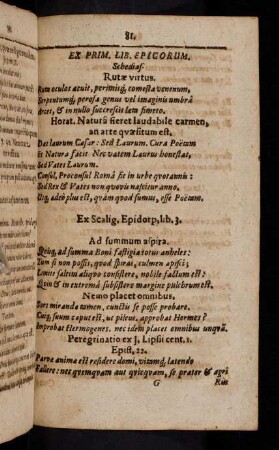 81.
EX PRIM. LIB. EPICORUM.
Schediaſ.
Rutæ virtus.
Ruta oculos acuit, perimitq́, comeſta venenum,
Serpentumq́, peroſa genus vel imaginis umbrâ
Arcet, & in nullo ſucceſcit lem fimeto.
Horat. Naturâ fieret laudabile carmen,
an arte quæſitum eſt.
Dat laurum Cæſar: Sed Laurum. Cura Poëtam
Et Natura facit. Nec vatem Laurus honeſtat,
Sed Vates Laurum.
Conſul, Proconſul Româ fit in urbe quotannis:
Sed Rex & Vates non quovis naſcitur anno,
Uſq́, adeò plus eſt, quàm quod ſumus, eſſe Poëtam.
Ex Scalig. Epidorp, lib. 3.
Ad ſummum aſpira.
ad ſumma Boni faſtigia totus anheles:
Tum ſi non poſſis, quod ſpiras, culmen apiſci;
Loüis ſaltim aliquo conſiſtere, nobile factum eſt:
Quin & in extremâ ſubſiſtere margine pulcrum eſt.
Nemo placet omnibus.
Sors miranda tamen, cunctis ſe poſſe probare.
Cuiq́, ſuum caput eſt, ut pileus. approbat Hermes?
Improbat Hermogenes. nec idem placet omnibus unquã.
Peregrinatio ex J. Lipſii cent. 1.
Epiſt, 22.
Parvæ anima eſt reſidere domi, vitamq́, latendo
Fallere: nec quemquam aut quicquam, ſe præter & agri
G
Rus